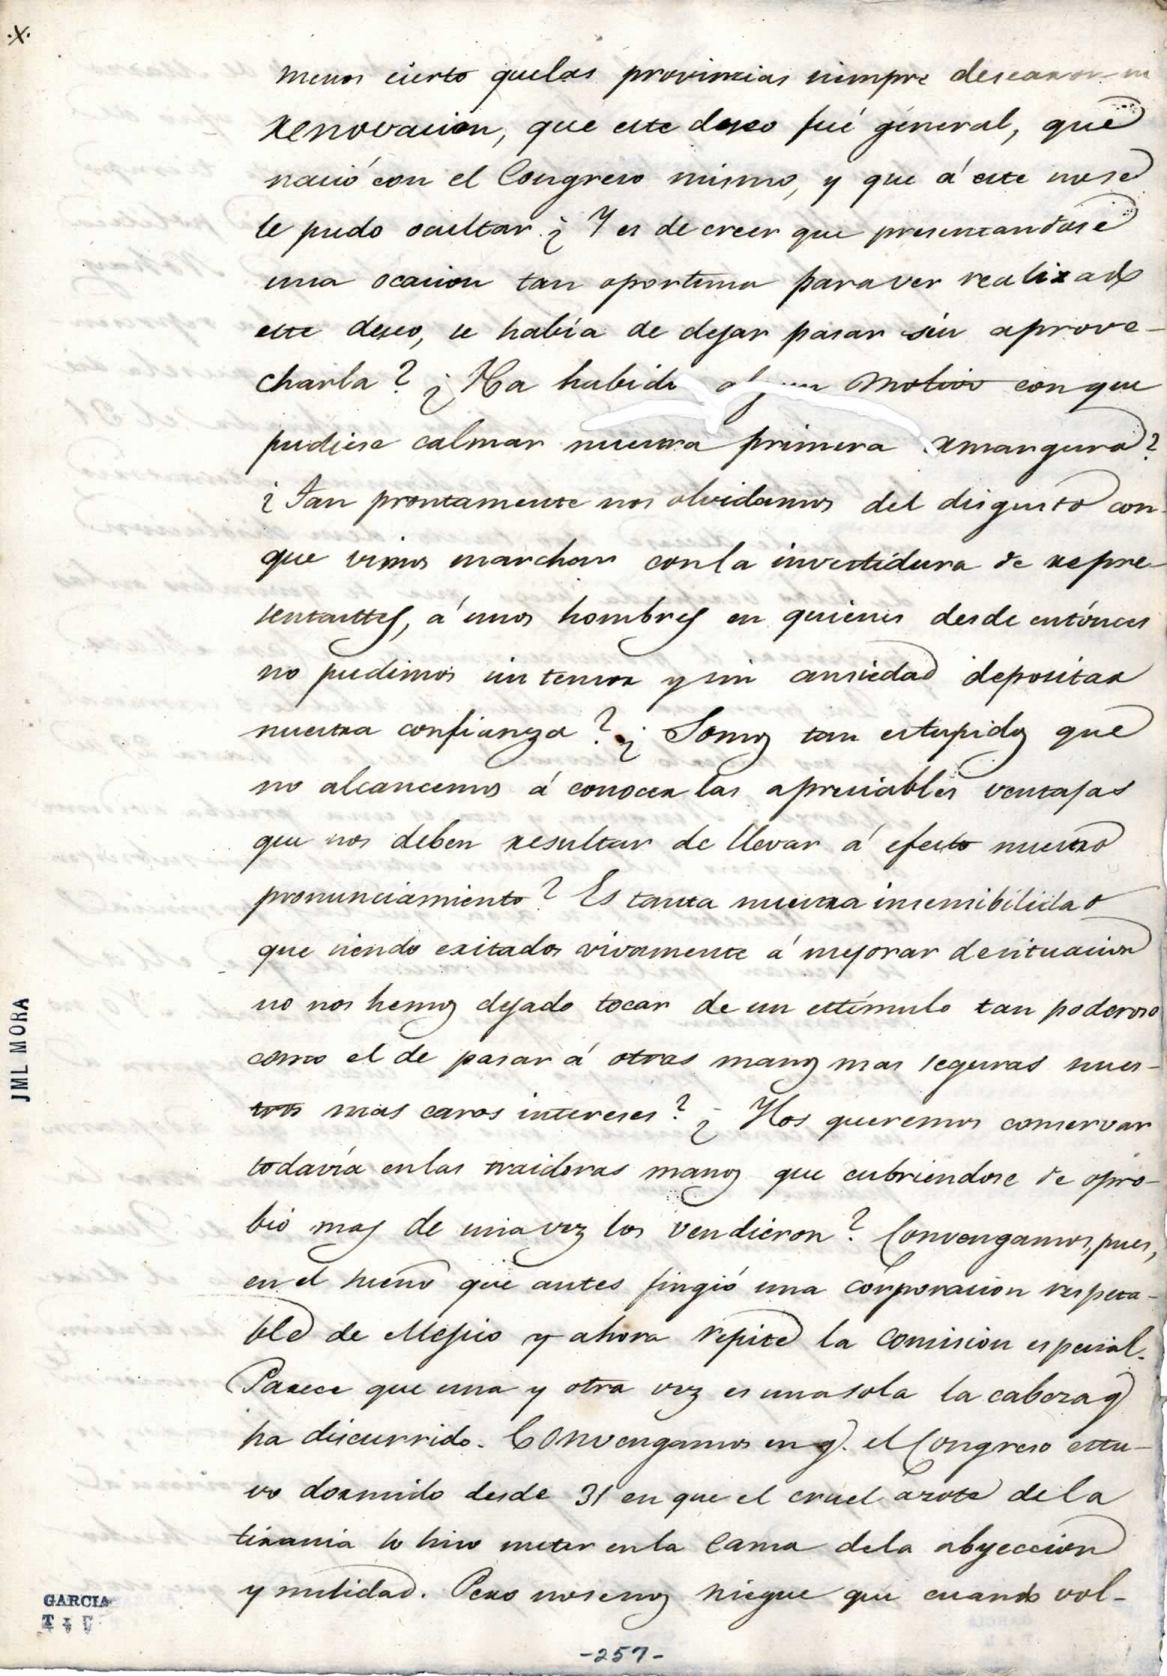 ·X·
menos cierto quelas provincias siempre desearon su
renovacion, que este deseo fué géneral, que
nació con el Congreso mismo, y que á este nose
le pudo ocultar. ¿Y es de creer que presentandose
una ocacion tan oportuna paraver realizado
este deseo, se había de dejar pasar sin aprove-
charla? ¿Ha habido algun motivo conque
pudiese calmar nuestra primera amargura?
¿Tan prontamente nos olvidamos del disgusto con-
que vimos marchar conla investidura de repre-
sentanttes, á unos hombres en quienes desde entónces
no pudimos sin temor y sin ansiedad depositar
nuestra confianza? ¿Somos tan estupidos que
no alcancemos á conocer las apreciables ventajas
que nos deben resultar de llevar á efecto nuestro
pronunciamiento? Es tanta nuestra insensibilidad
que siendo exitados vivamente á mejorar desituacion
no nos hemos dejado tocar de un estímulo tan poderoso
como el de pasar á otras manos mas seguras nues-
tros mas caros intereses? ¿Los queremos conservar
todavía enlas traidoras manos que cubriendose de opro-
bio mas de unavez los vendieron? Convengamos, pues,
en el sueño que antes fingió una corporacion respeta-
ble de Mejico y ahora repite la comision especial.
Parece que una y otra vez es unasola la cabeza q
ha discurrido. Convengamos en q. el Congreso estu-
vo dormido desde 31 en que el cruel azote dela
tirania lo hizo meter enla cama dela abyeccion
y nulidad. Pero nosenos niegue que cuando vol-
JML MORA
GARCIA
-257-